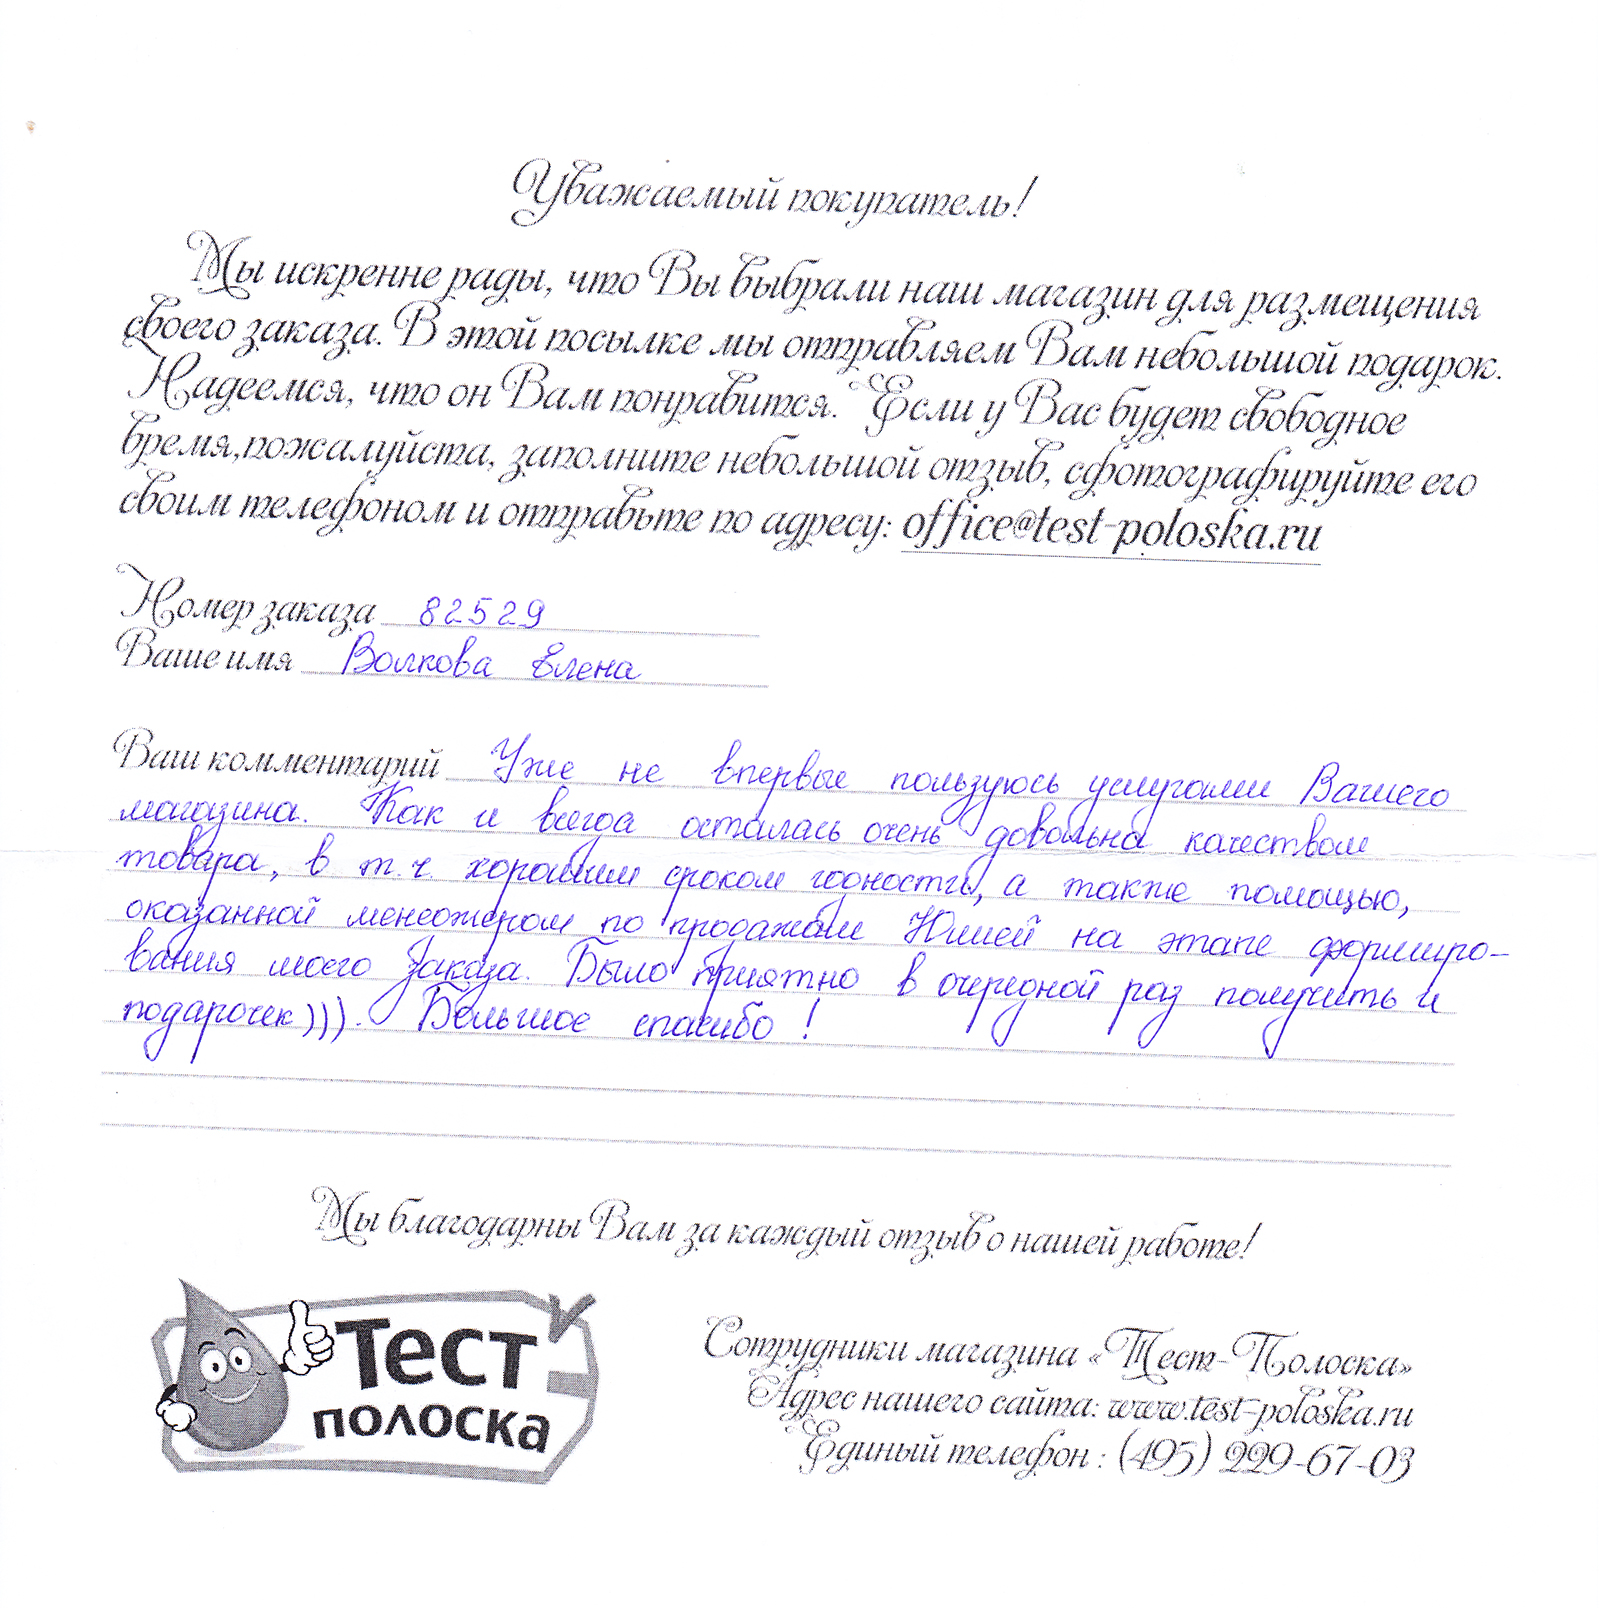 Уважаемый покупатель!
Мы искренне рады, что Вы выбрали наш магазин для размещения
своего заказа. В этой посылке мы отправляем Вам небольшой подарок.
Надеемся, что он Вам понравится. Если у Вас будет свободное
время,пожалуйста, заполните небольшой отзыв, сфотографируйте его
своим телефоном и отправьте по адресу: office@test-poloska.ru
Номер заказа 82529
Ваше имя Волкова Елена
Ваш комментарий Уже не впервые пользуюсь услугами Вашего
магазина. Как и всегда осталась очень довольна качеством
товара, в т.ч. хорошим сроком годности, а также помощью,
оказанной менеджером по продажам Юлией на этапе формиро-
вания моего заказа. Было приятно в очередной раз получить и
подарочек))). Большое спасибо!
Мы благодарны Вам за каждый отзыв о нашей работе!
Тест
полоска
Сотрудники магазина «Тест-Полоска»
Адрес нашего сайта: www.test-poloska.ru
Единый телефон : (495) 229-67-03